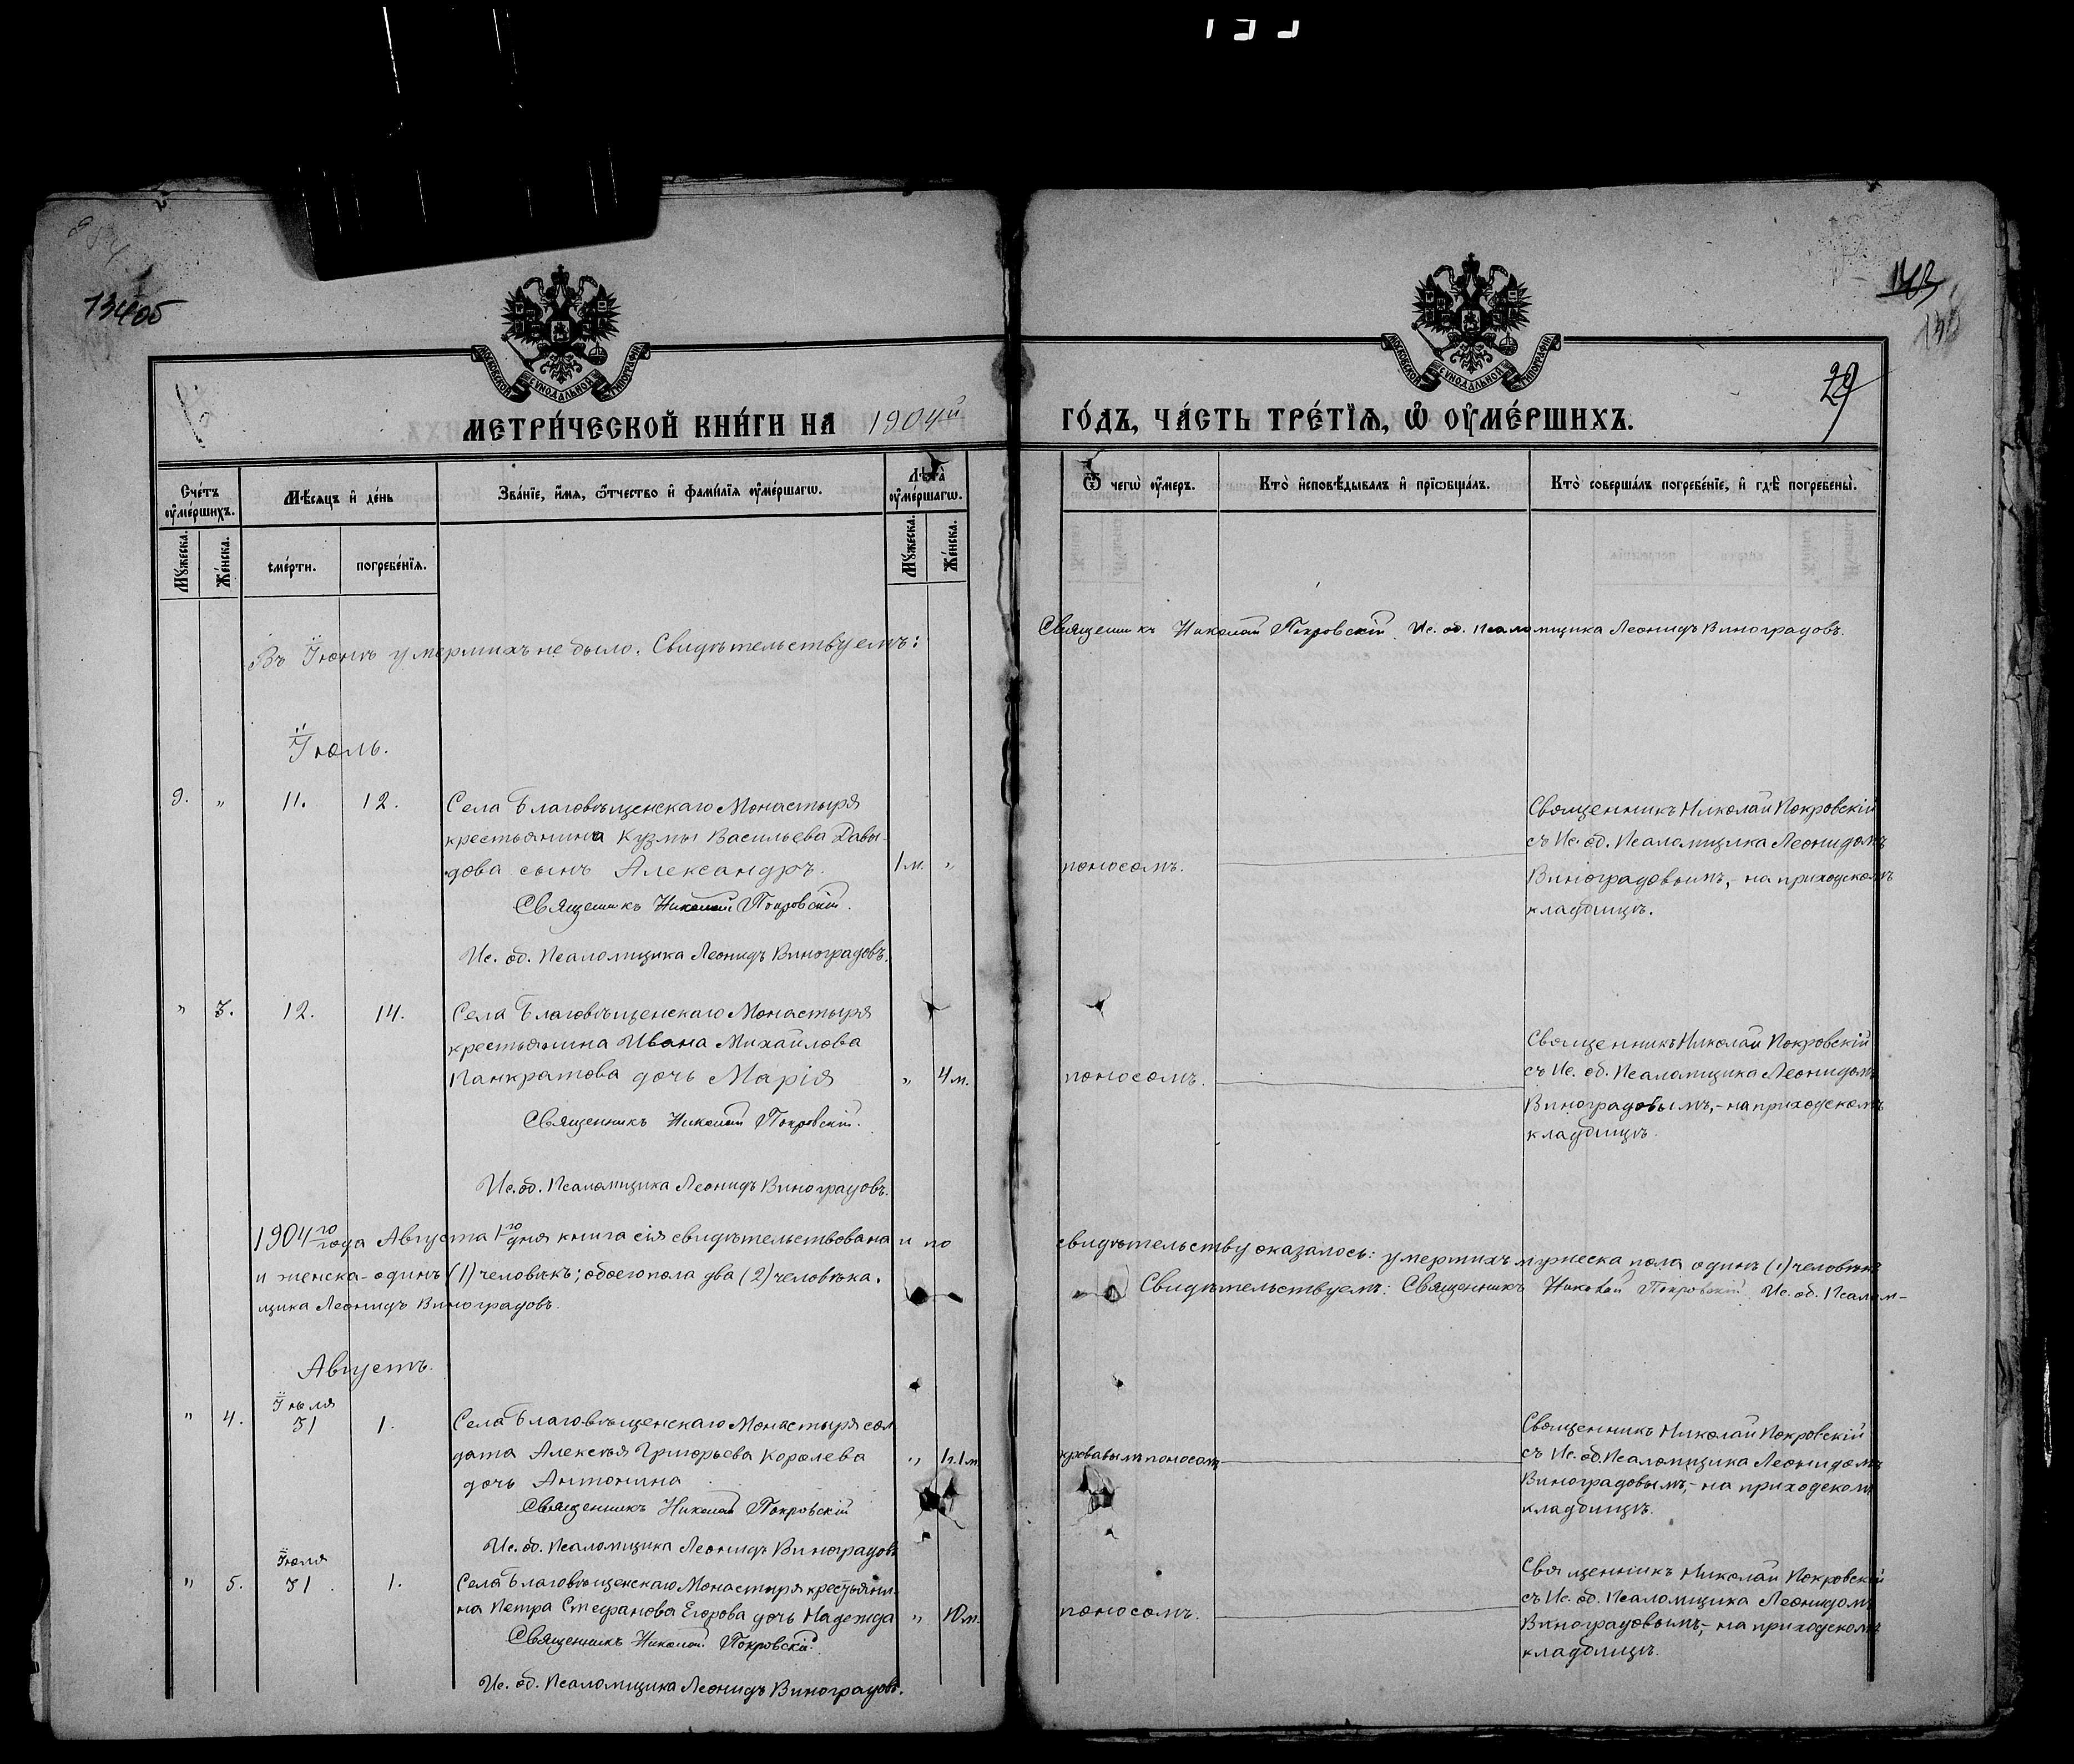 134об
29
МОСКОВСКОЙ СѴНОДАЛЬНОЙ ТИПОГРАФІИ
МОСКОВСКОЙ СѴНОДАЛЬНОЙ ТИПОГРАФІИ
МЕТРИ́ЧЕСКОЙ КНИ́ГИ НА 1904й ГО́ДЪ, ЧА́СТЬ ТРЕ́ТЇѦ, Ѽ ОУ҆МЕ́РШИХЪ.
Сче́тъ оу҆ме́ршихъ.
Мѣ́сѧцъ и҆ де́нь
Зва́нїе, и҆́мѧ, ѻ҆́тчество и҆ фами́лїѧ оу҆ме́ршагѡ.
Лѣ́та оу҆ме́ршагѡ.
Ѿ чегѡ̀ оу҆́меръ.
Кто̀ и҆сповѣ́дывалъ и҆ прїѡбща́лъ.
Кто̀ соверша́лъ погребе́нїе, и҆ гдѣ̀ погребены̀.
Мꙋ́жеска.
Же́нска.
сме́рти.
погребе́нїѧ.
Мꙋ́жеска.
Же́нска.
Въ Іюнѣ умершихъ не было. Свидѣтельствуемъ: Священникъ Николай Покровскій. Ис. об. Псаломщика Леонидъ Виноградовъ.
Іюль.
9. " 11. 12. Села Благовѣщенскаго Монастыря
крестьянина Кузмы Васильева Давы-
дова сынъ Александръ. 1м. " поносомъ.
Священникъ Николай Покровскій.
Ис. об. Псаломщика Леонидъ Виноградовъ.
Священникъ Николай Покровскій
съ Ис. об. Псаломщика Леонидомъ
Виноградовымъ, на приходскомъ
кладбищѣ.
" 3. 12. 14. Села Благовѣщенскаго Монастыря
крестьянина Ивана Михайлова
Панкратова дочь Марія " 4м. поносомъ.
Священникъ Николай Покровскій.
Ис. об. Псаломщика Леонидъ Виноградовъ.
Священникъ Николай Покровскій
съ Ис. об. Псаломщика Леонидомъ
Виноградовымъ,- на приходскомъ
кладбищѣ.
1904го года Августа 1го дня книга сія свидѣтельствована и по свидѣтельству оказалось: умершихъ мужеска пола одинъ (1) человѣкъ
и женска-одинъ (1) человѣкъ; обоего пола два (2) человѣка. Свидѣтельствуемъ: Священникъ Николай Покровскій Ис. об. Псалом-
щика Леонидъ Виноградовъ.
Августъ.
" 4. Іюля 31 1. Села Благовѣщенскаго Монастыря сол
дата Алексѣя Григорьева Королева " 1г.1м. кровавымъ поносомъ
дочь Антонина
Священникъ Николай Покровскій
Ис. об. Псаломщика Леонидъ Виноградовъ
Священникъ Николай Покровскій
съ Ис. об. Псаломщика Леонидомъ
Виноградовымъ,- на приходскомъ
кладбищѣ.
" 5. Іюля 31. 1. Села Благовѣщенскаго Монастыря крестьяни-
на Петра Стефанова Егорова дочь Надежда " 10м. поносомъ.
Священникъ Николай Покровскій.
Ис. об. Псаломщика Леонидъ Виноградовъ.
Священникъ Николай Покровскій
съ Ис. об. Псаломщика Леонидомъ
Виноградовымъ,- на приходскомъ
кладбищѣ.